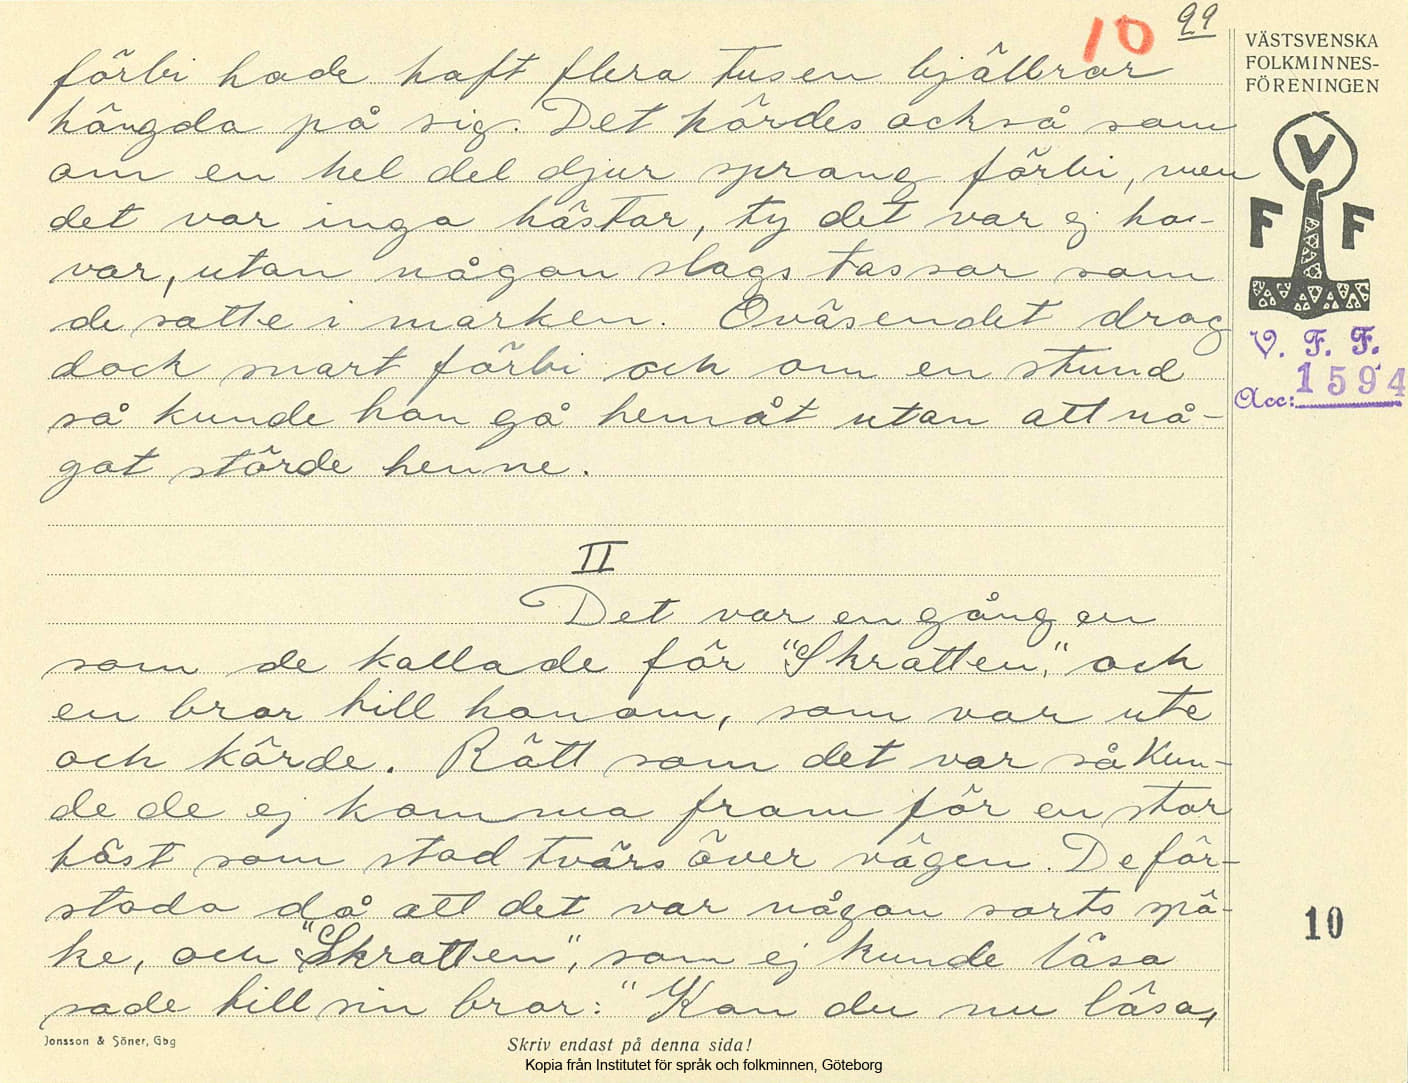 10 99
VÄSTSVENSKA
FOLKMINNES-
FÖRENINGEN
förbi hade haft flera tusen bjällror
hängda på sig. Det hördes också som
om en hel del djur sprang förbi, men
det var inga hästar, ty det var ej ho-
var, utan någon slags tassar som
de satte i marken. Oväsendet drog
dock snart förbi och om en stund
så kunde hon gå hemåt utan att nå-
got störde henne.
V
F F
V. F. F.
Acc: 1594
II
Det var en gång en
som de kallade för "Skratten", och
en bror till honom, som var ute
och körde. Rätt som det var så kun-
de de ej komma fram för en stor
häst som stod tvärs över vägen. De för-
stodo då att det var någon sorts spö-
ke, och "Skratten", som ej kunde läsa
sade till sin bror: "Kan du nu läsa,
10
Jonsson & Söner, Gbg
Skriv endast på denna sida!
Kopia från Institutet för språk och folkminnen, Göteborg